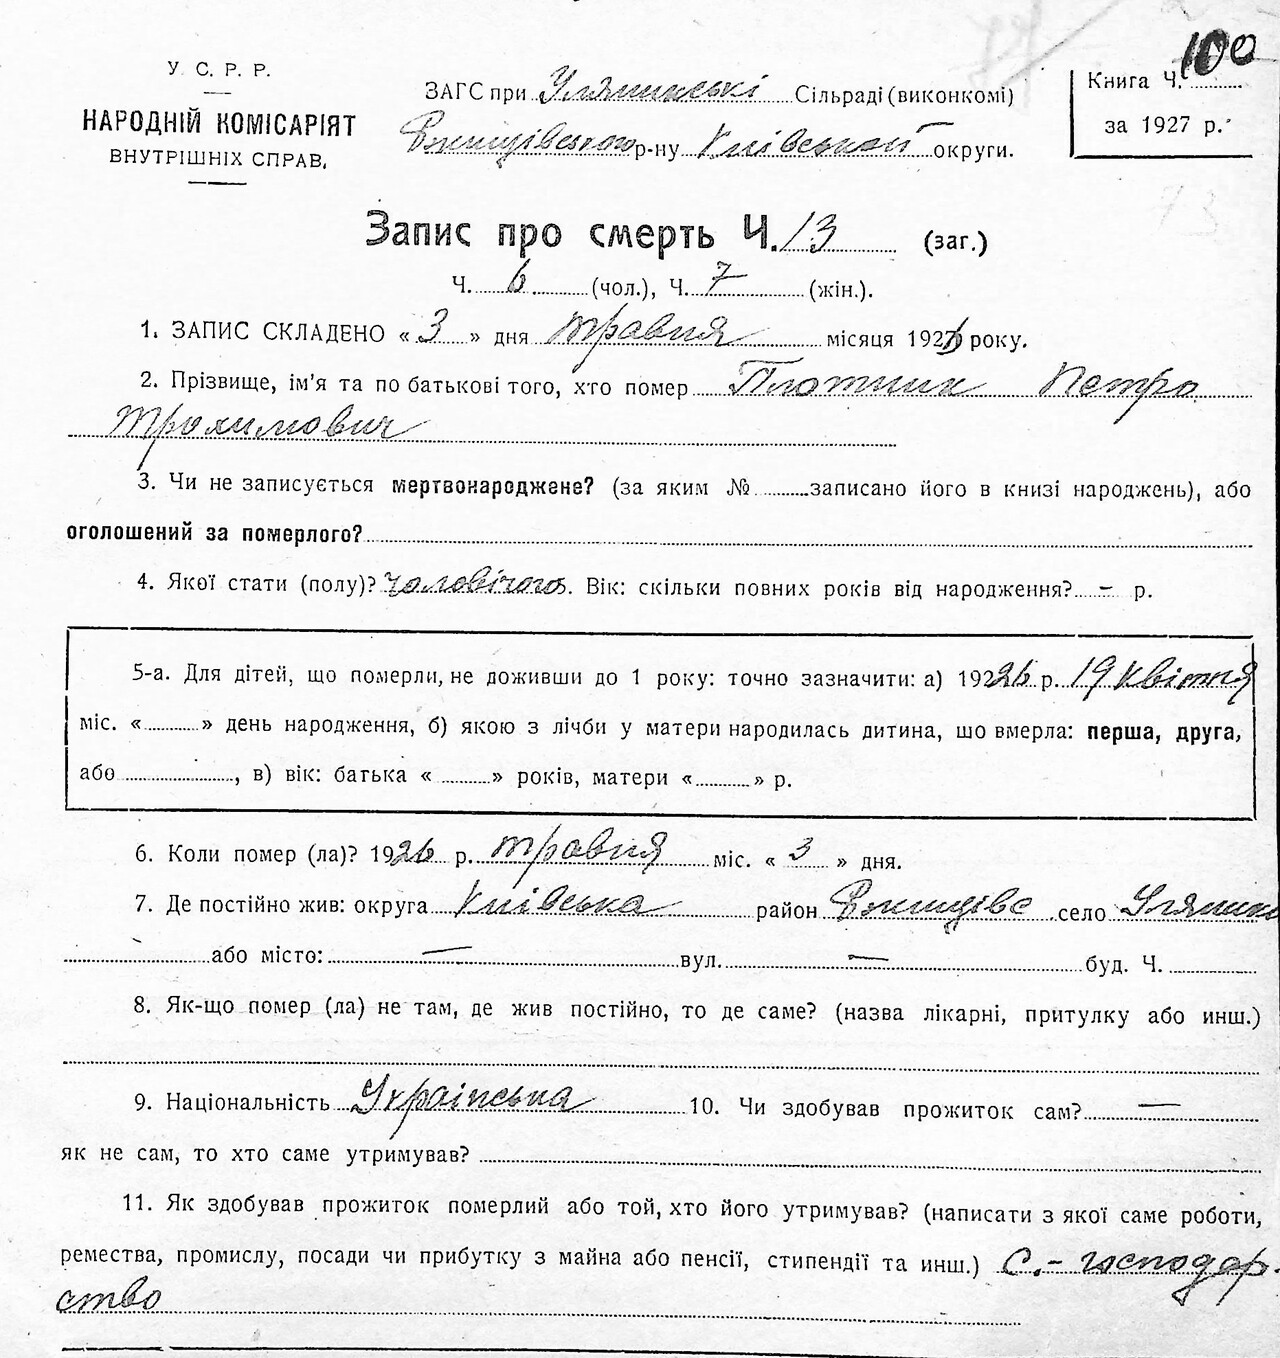 100
У. С. Р. Р.
НАРОДНІЙ КОМІСАРІЯТ
ВНУТРІШНІХ СПРАВ.
ЗАГС при Улянинські Сільраді (виконкомі)
Ржищівського р-ну Київської округи.
Книга Ч.
за 1927 р.
73
Запис про смерть Ч. 13 (заг.)
Ч. 6 (чол.), Ч. 7 (жін.).
1. ЗАПИС СКЛАДЕНО « 3 » дня травня місяця 1926 року.
2. Прізвище, ім'я та по батькові того, хто помер Плотник Петро
Трохимович
3. Чи не записується мертвонароджене? (за яким № записано його в книзі народжень), або
оголошений за померлого?
4. Якої стати (полу)? чоловічого. Вік: скільки повних років від народження? – р.
5-а. Для дітей, що померли, не доживши до 1 року: точно зазначити: а) 1926 р. 19 квітня
міс. « » день народження, б) якою з лічби у матери народилась дитина, шо вмерла: перша, друга,
або , в) вік: батька « » років, матери « » р.
6. Коли помер (ла)? 1926 р. травня міс. « 3 » дня.
7. Де постійно жив: округа Київська район Ржищівс село Уляники
або місто: — вул. — буд. Ч.
8. Як-що помер (ла) не там, де жив постійно, то де саме? (назва лікарні, притулку або инш.)
9. Національність Українська 10. Чи здобував прожиток сам? —
як не сам, то хто саме утримував?
11. Як здобував прожиток померлий або той, хто його утримував? (написати з якої саме роботи,
ремества, промислу, посади чи прибутку з майна або пенсії, стипендії та инш.) С.-господар-
ство